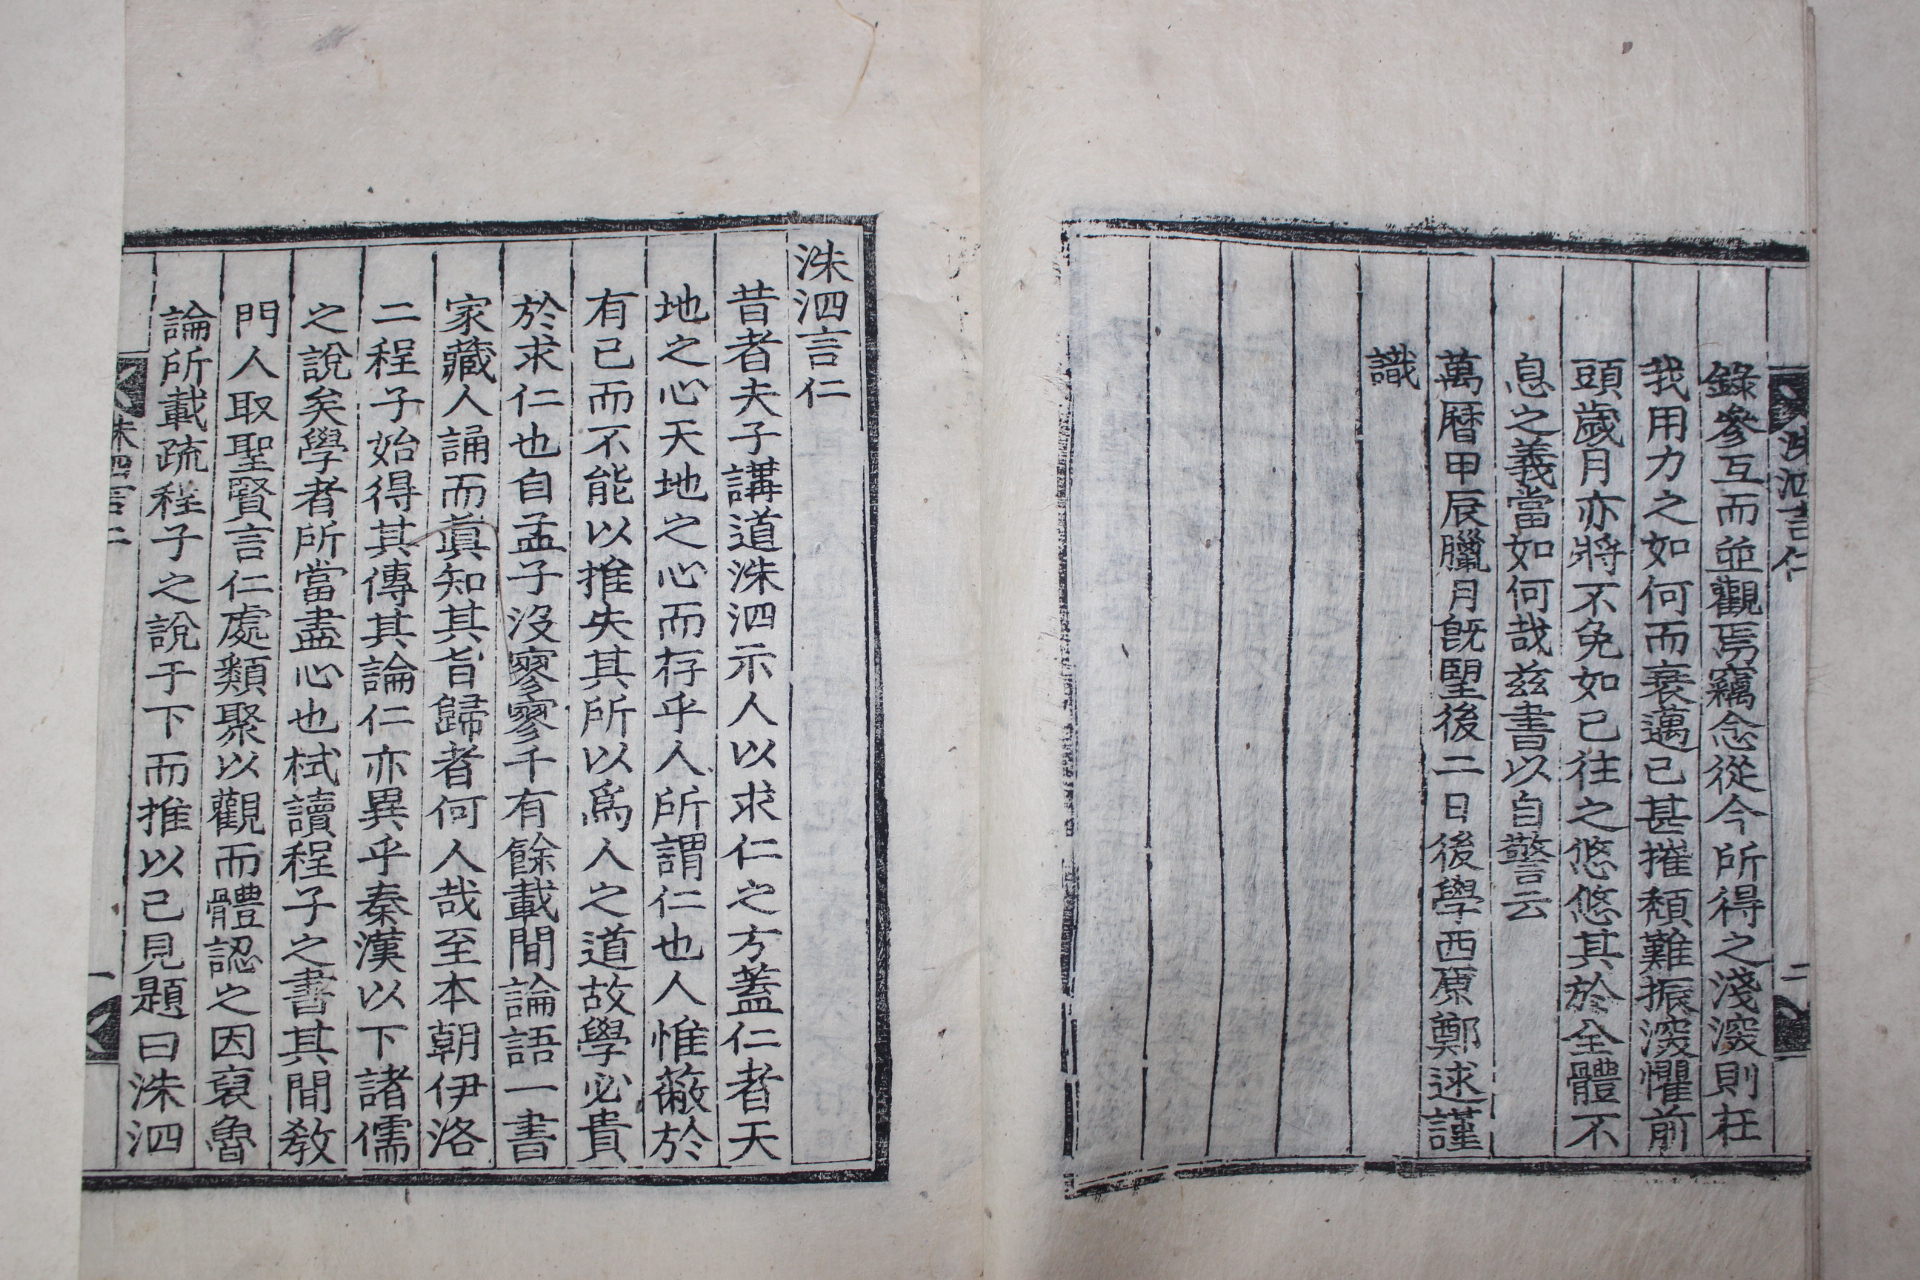 洙泗言仁
二
錄參互而並觀焉竊念從今所得之淺深則在
我用力之如何而衰邁已甚摧頹難振深懼前
頭歲月亦將不免如已往之悠悠其於全體不
息之義當如何哉玆書以自警云
萬曆甲辰臘月旣望後二日後學西原鄭逑謹
識
洙泗言仁
昔者夫子講道洙泗示人以求仁之方蓋仁者天
地之心天地之心而存乎人所謂仁也人惟蔽於
有已而不能以推失其所以爲人之道故學必貴
於求仁也自孟子沒寥寥千有餘載間論語一書
家藏人誦而眞知其旨歸者何人哉至本朝伊洛
二程子始得其傳其論仁亦異乎秦漢以下諸儒
之說矣學者所當盡心也栻讀程子之書其間敎
門人取聖賢言仁處類聚以觀而體認之因裒魯
論所載疏程子之說于下而推以己見題曰洙泗
洙泗言仁
一